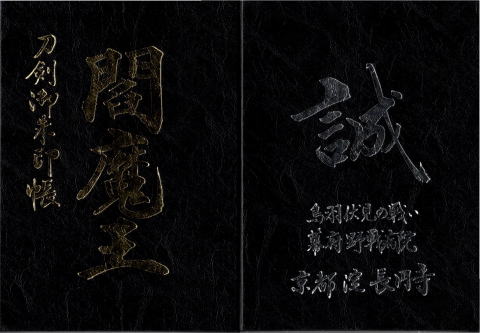 刀剣御朱印帳
閻魔王
誠
鳥羽伏見の戦い
幕府野戦病院
京都 淀 長円寺